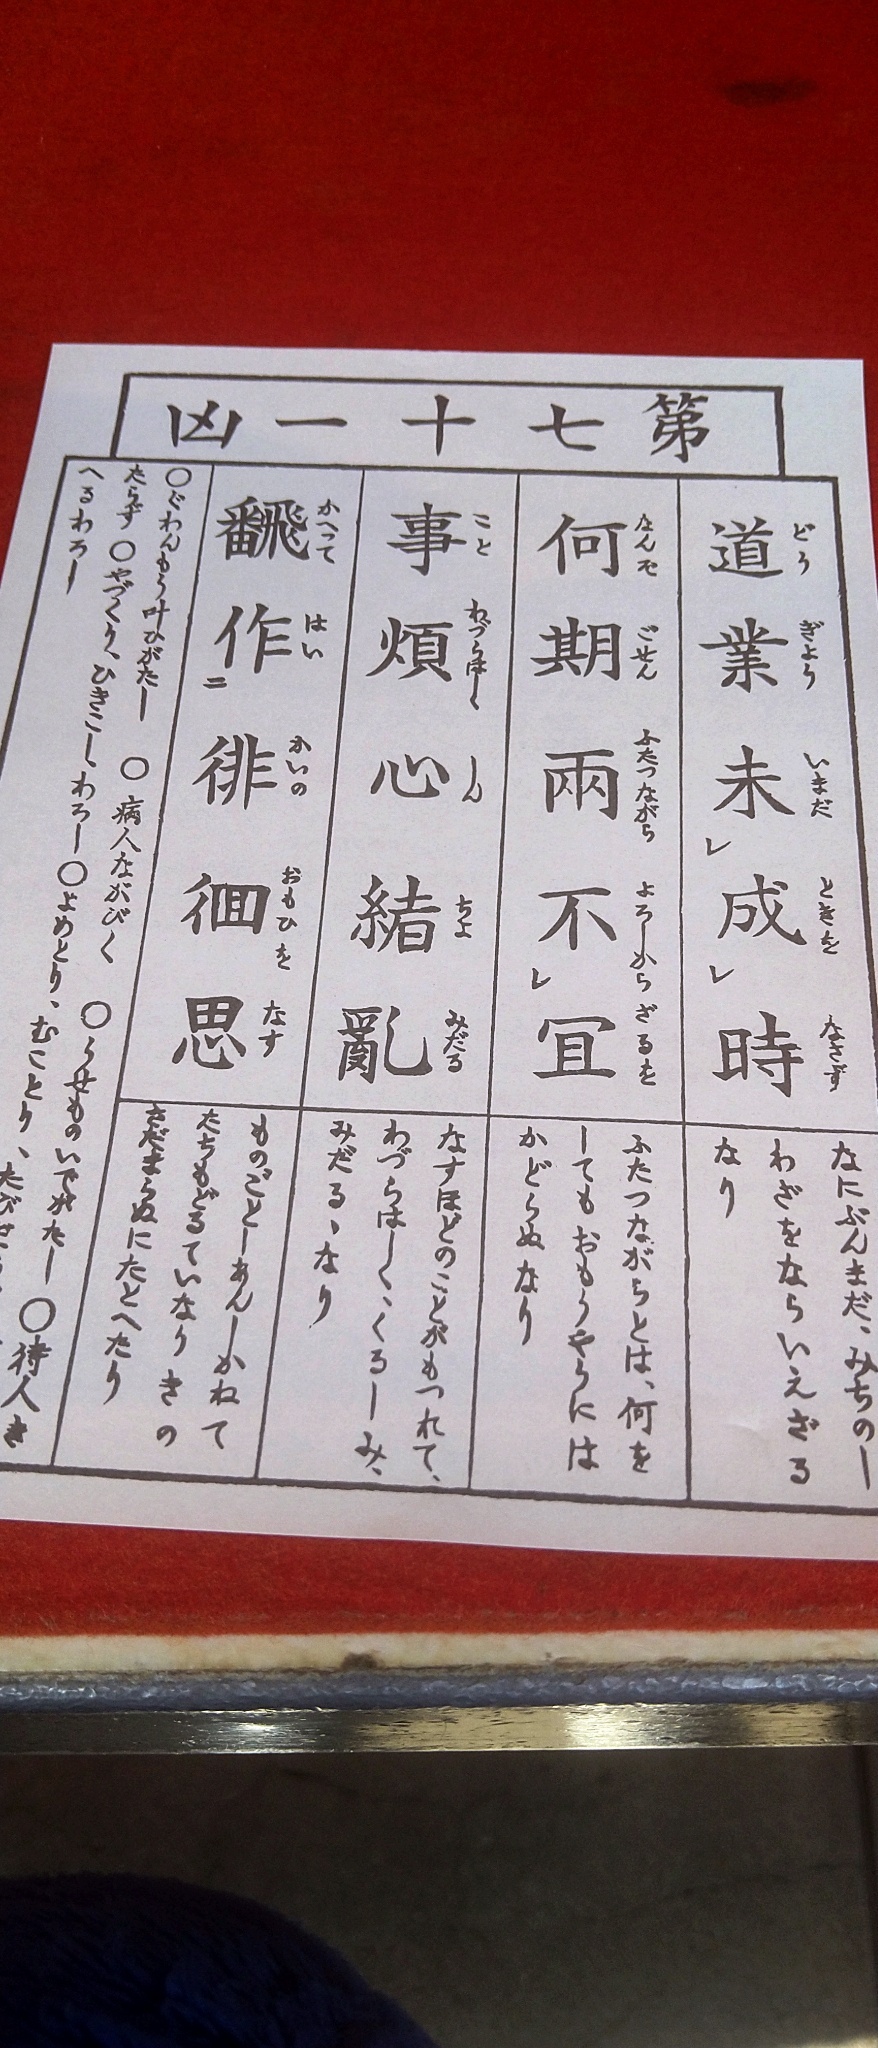 第七十一凶
道業未成時
どうぎょういまだときをなさず
レ レ
なにぶんまだ、みちの
わざをならいえざる
なり
何期兩不冝
なんぞごせんふたつながらよろしからざるを
レ
ふたつながらとは、何を
してもおもうやうには
かどらぬなり
事煩心緒亂
ことわづらはしくしんちよみだる
なすほどのことがもつれて、
わづらはしく、くるしみ、
みだるゝなり
飜作徘徊思
かへつてはいかいのおもひをなす
二
ものごとしあんしかねて
たちもどるていなり きの
さだまらぬにたとへたり
〇ぐわんもう叶ひがたし 〇病人ながびく 〇うせものいでがたし 〇待人き
たらず 〇やづくり、ひきこしわろし 〇よめとり、むことり、たび
へるわろし